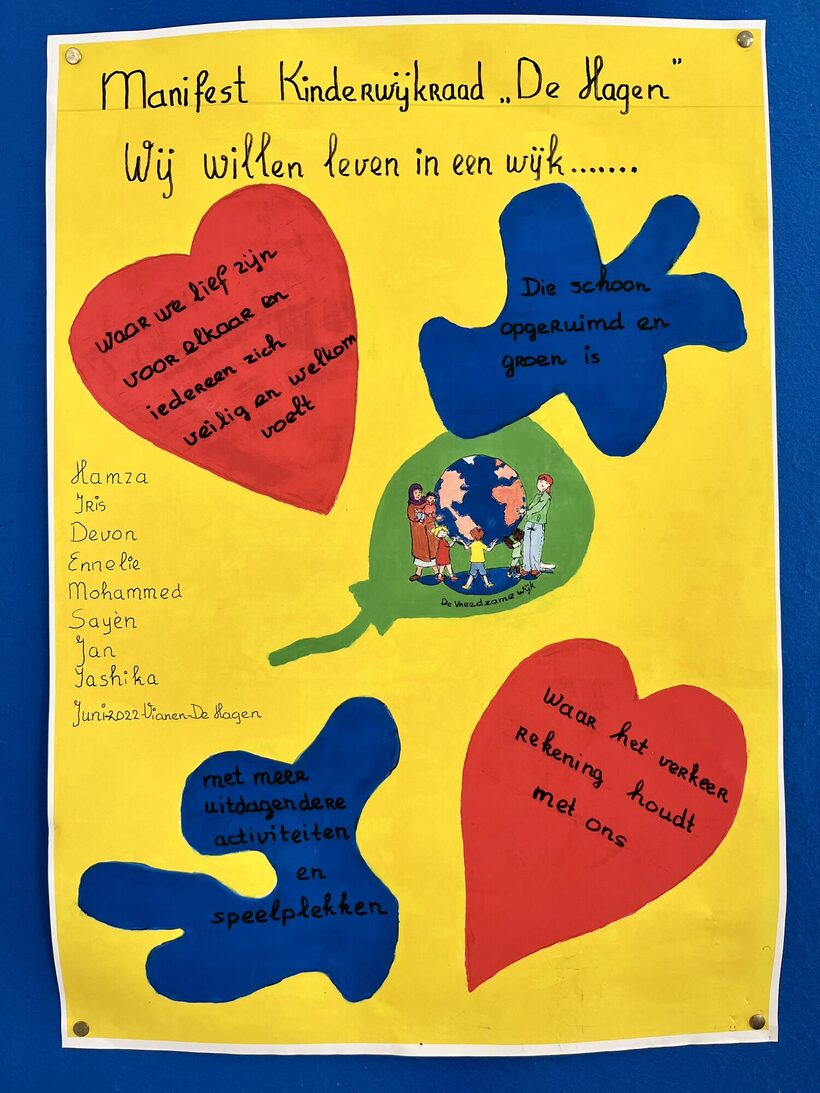 Manifest Kinderwijkraad „De Hagen"
Wij willen leven in een wijk.......
waar we lief zijn
voor elkaar en
iedereen zich
veilig en welkom
voelt
Die schoon
opgeruimd en
groen is
Hamza
Iris
Devon
Ennelie
Mohammed
Sayèn
Jan
Jashika
Juni-2022-Vianen-De Hagen
De Vreedzame Wijk
met meer
uitdagendere
activiteiten
en
speelplekken
Waar het verkeer
rekening houdt
met ons